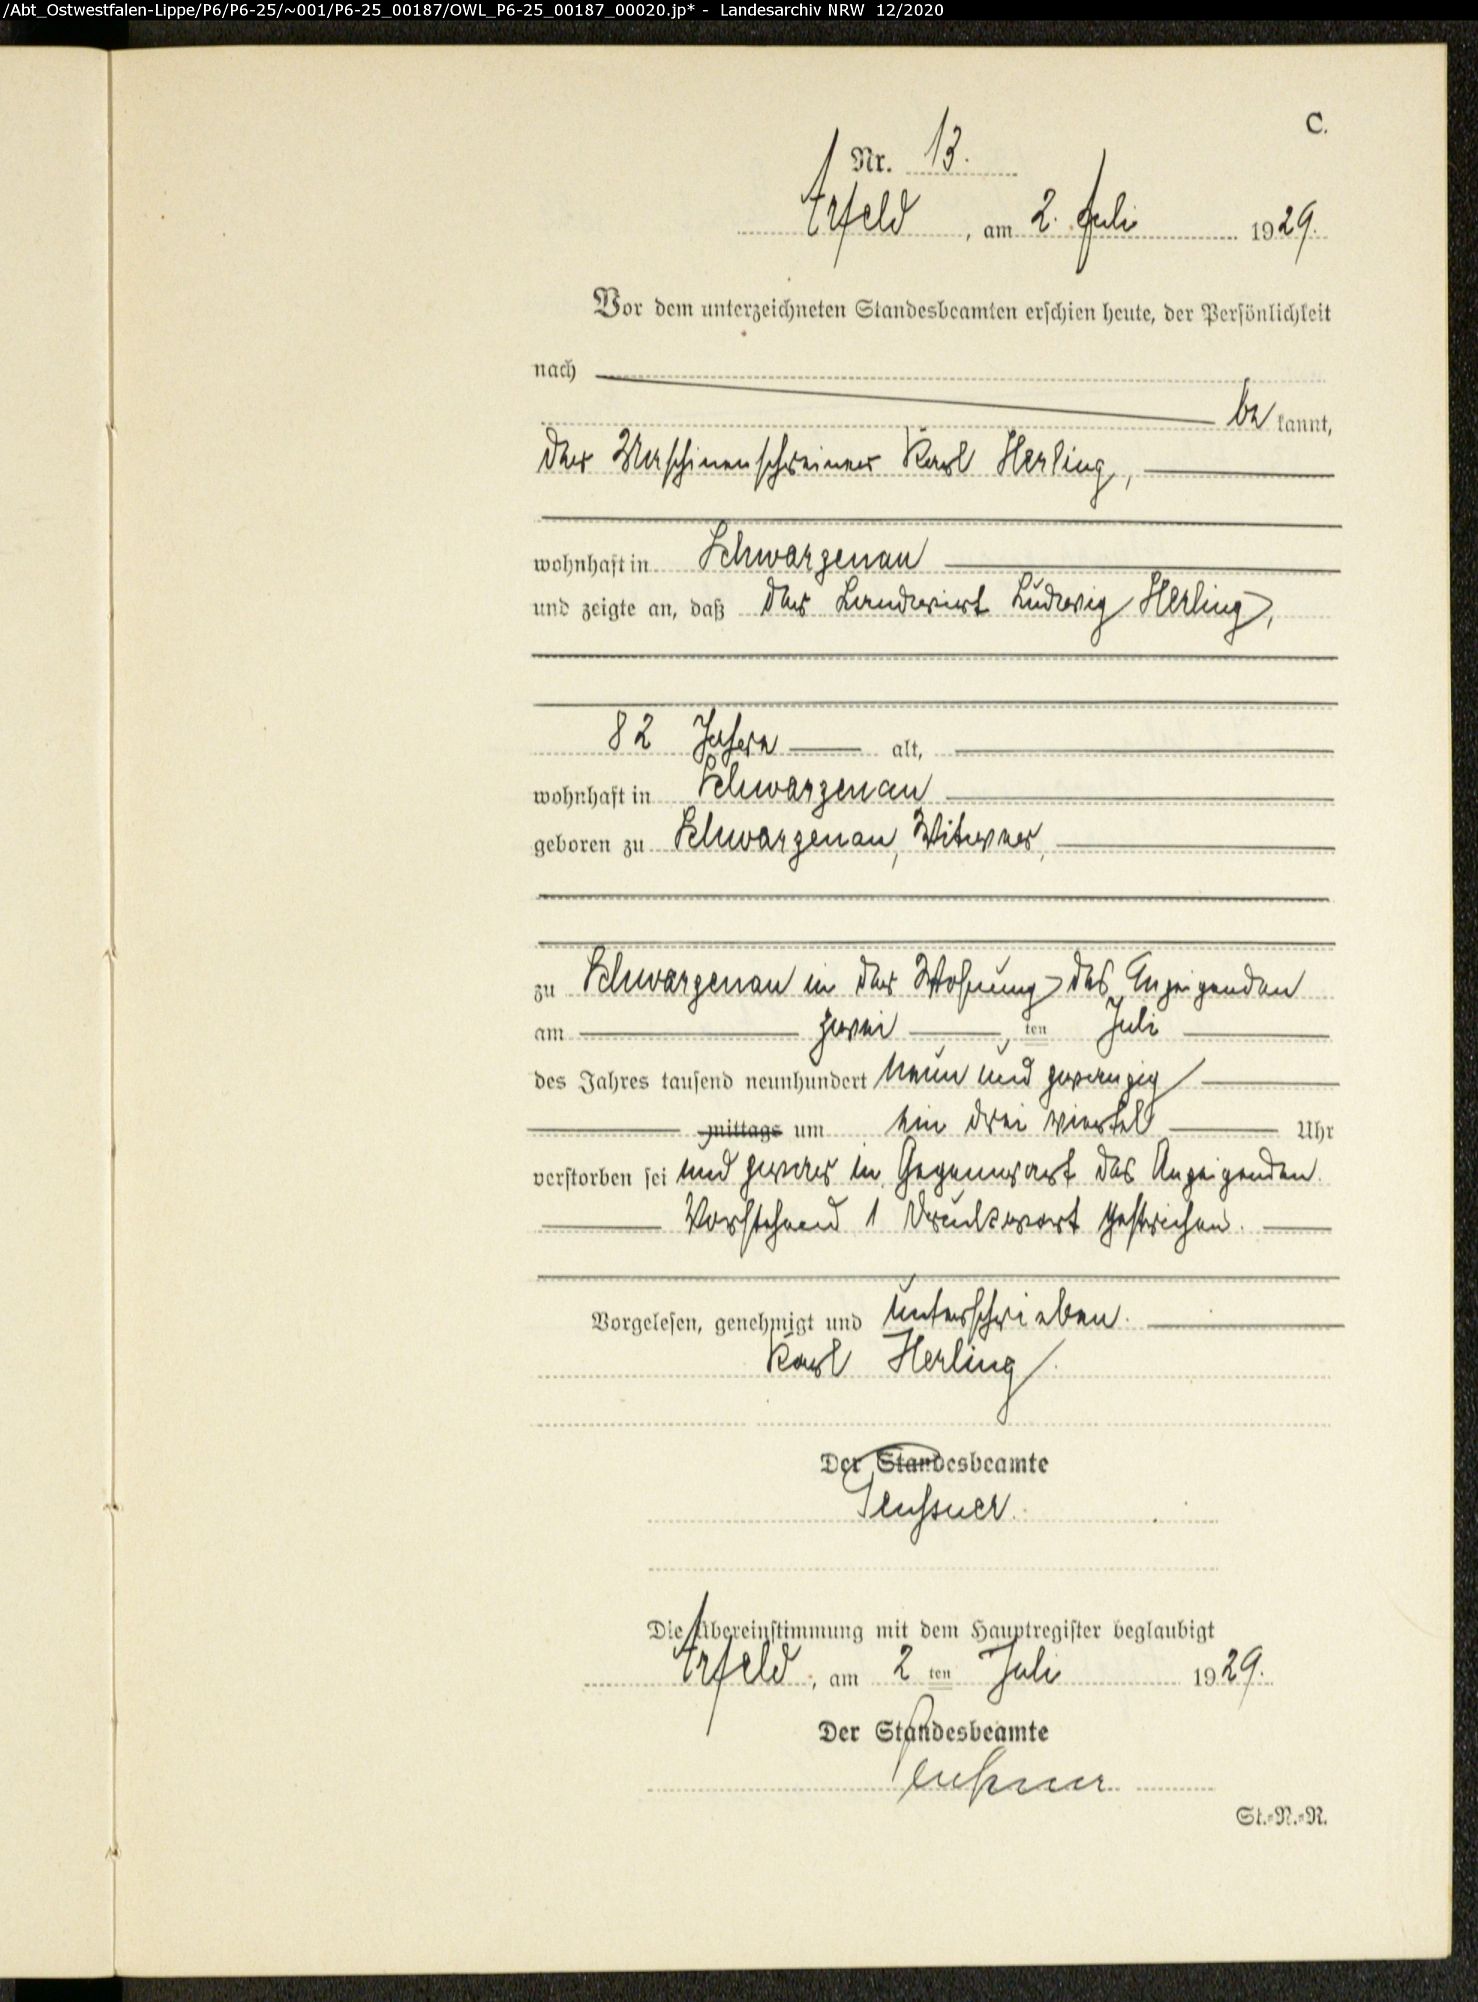 /Abt_Ostwestfalen-Lippe/P6/P6-25/~001/P6-25_00187/OWL_P6-25_00187_00020.jp* - Landesarchiv NRW 12/2020
C.
Nr. 13.
Arfeld, am 2. Juli 1929.
Vor dem unterzeichneten Standesbeamten erschien heute, der Persönlichkeit
nach
be kannt,
der Maschinenschreiner Karl Herling,
wohnhaft in Schwarzenau
und zeigte an, daß der Landwirt Ludwig Herling,
82 Jahre alt,
wohnhaft in Schwarzenau
geboren zu Schwarzenau, Witwer,
zu Schwarzenau in der Wohnung des Anzeigenden
am zwei ten Juli
des Jahres tausend neunhundert neun und zwanzig
mittags um ein drei viertel Uhr
verstorben sei und zwar in Gegenwart des Anzeigenden.
Vorstehend 1 Druckwort gestrichen.
Vorgelesen, genehmigt und unterschrieben.
Karl Herling.
Der Standesbeamte
Die Übereinstimmung mit dem Hauptregister beglaubigt
Arfeld, am 2 ten Juli 1929.
Der Standesbeamte
St.-N.-R.